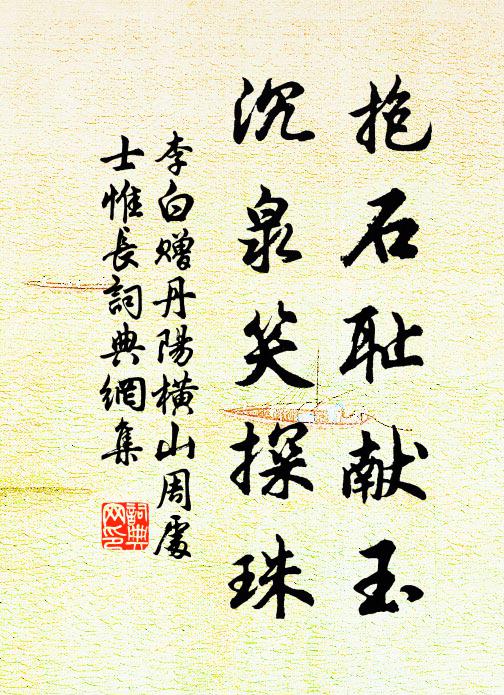 抱石耻献玉
沉泉笑探珠
李白赠丹陽横山周處
士惟長詞典網集
詞典
网印